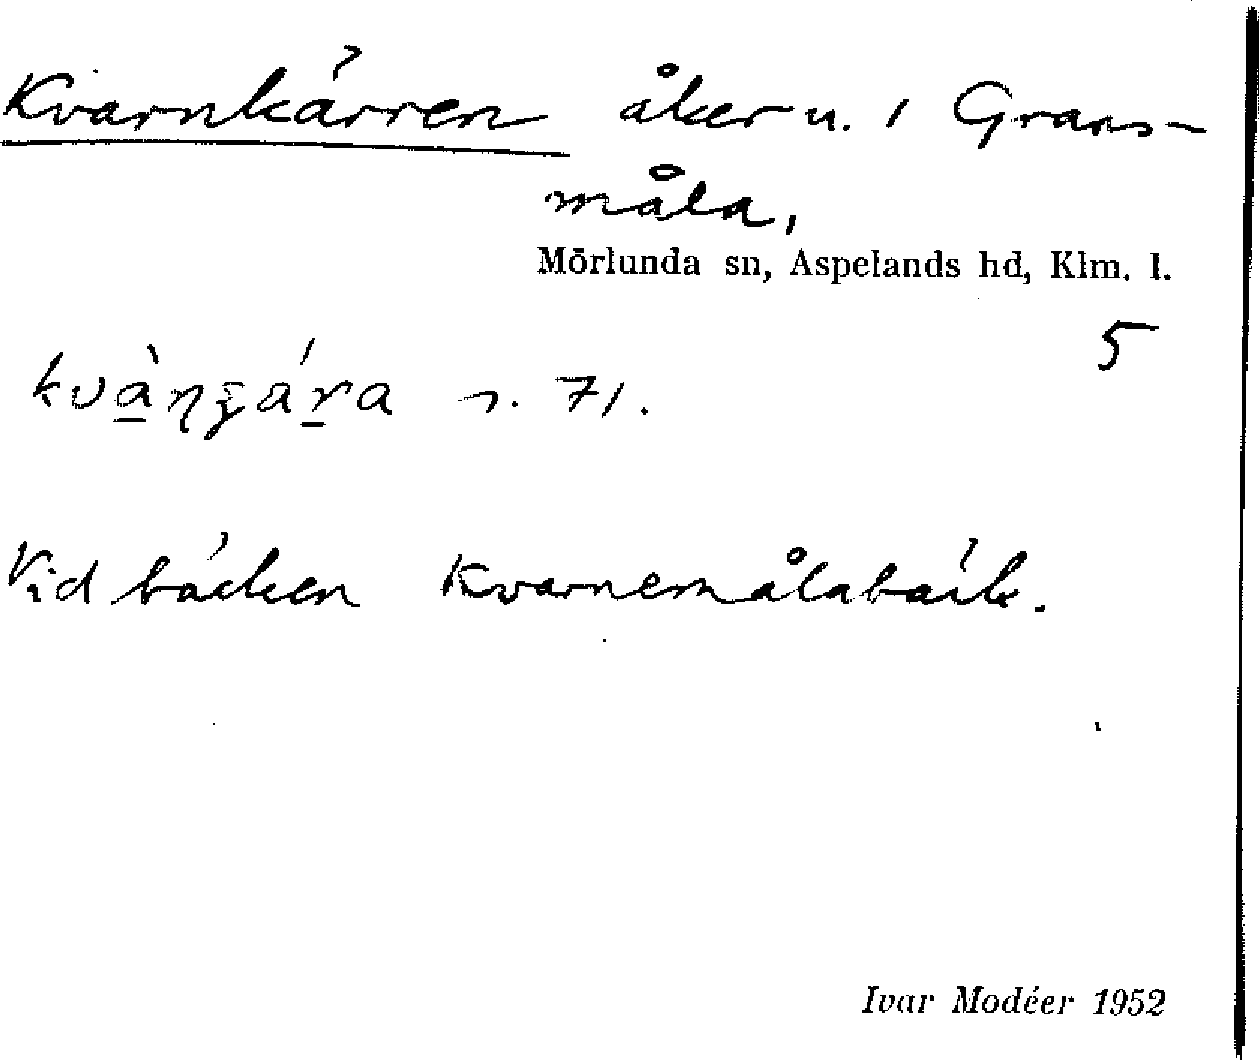 Kvarnkärren åker u. 1 Grans-
måla,
Mörlunda sn, Aspelands hd, Klm. l.
5
r. 71.
Vid bäcken Kvarnemålabäck.
Ivar Modéer 1952